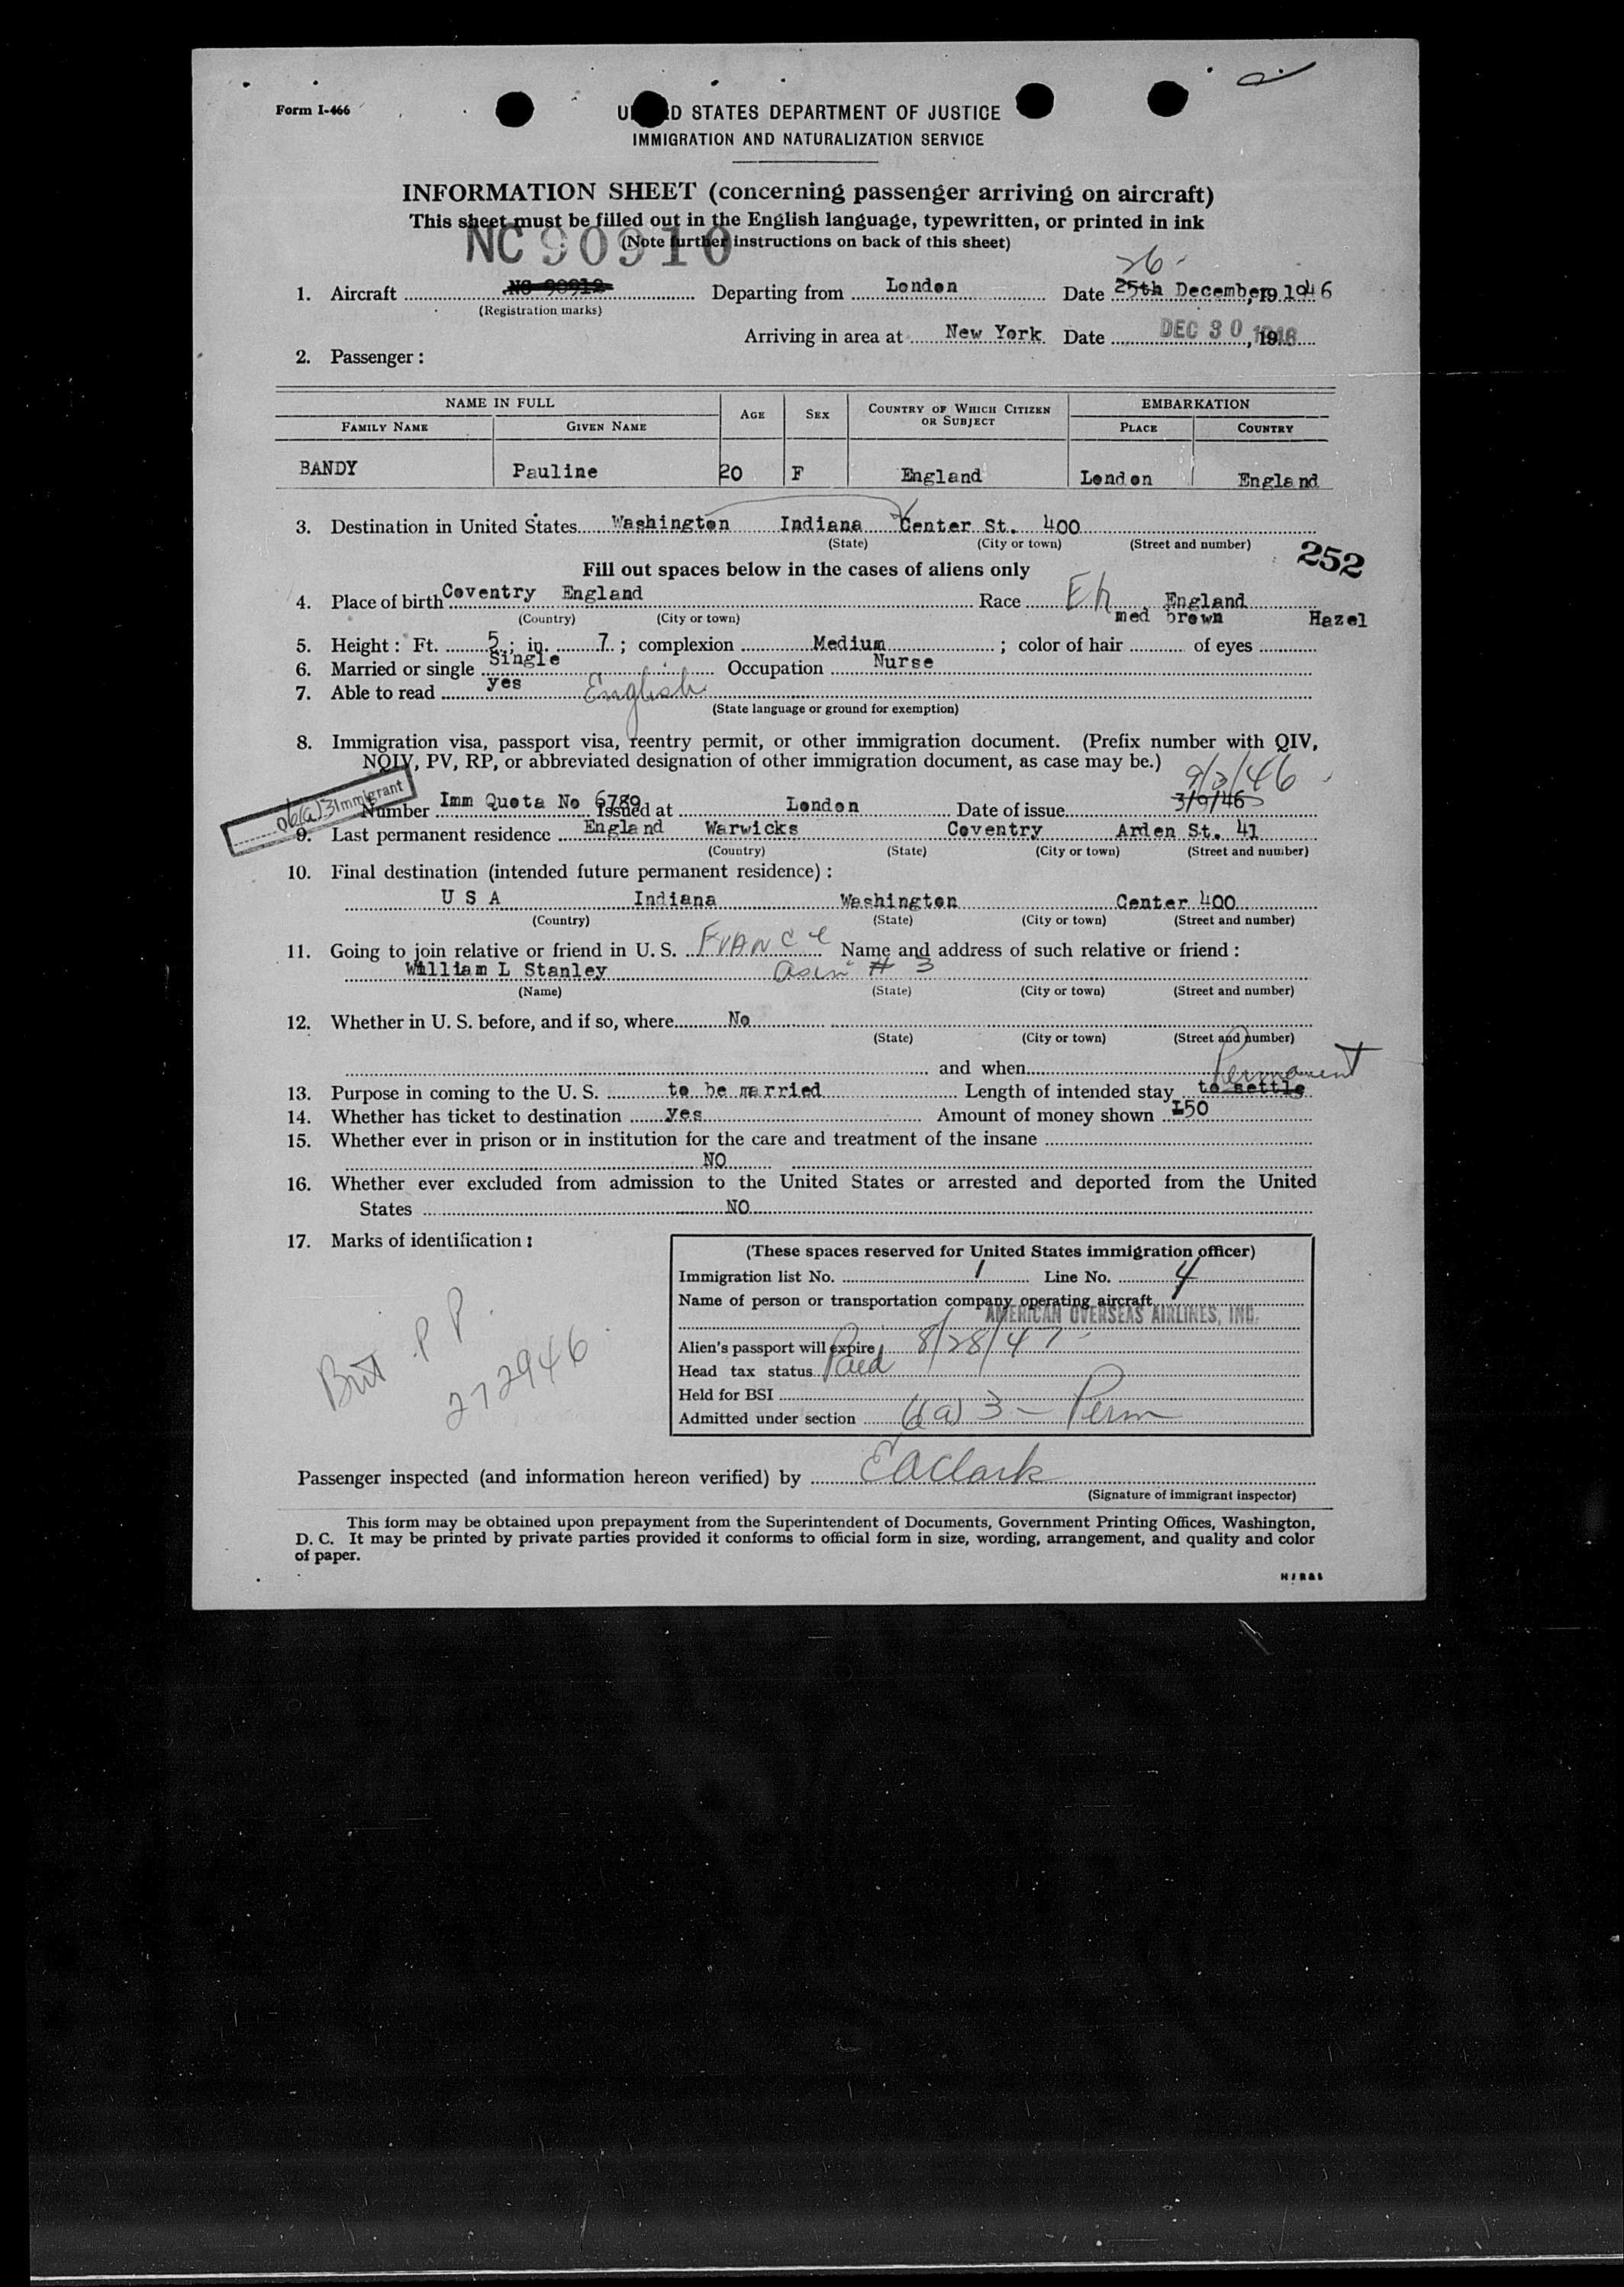 Form I-466
UNITED STATES DEPARTMENT OF JUSTICE
IMMIGRATION AND NATURALIZATION SERVICE
INFORMATION SHEET (concerning passenger arriving on aircraft)
This sheet must be filled out in the English language, typewritten, or printed in ink
(Note further instructions on back of this sheet)
NC 90910
26-
1. Aircraft NC 90912 Departing from London Date 25th December, 19 1946
(Registration marks)
Arriving in area at New York Date DEC 30 1946, 19
2. Passenger:
NAME IN FULL AGE SEX COUNTRY OF WHICH CITIZEN OR SUBJECT EMBARKATION
FAMILY NAME GIVEN NAME PLACE COUNTRY
BANDY Pauline 20 F England London England
3. Destination in United States Washington Indiana Center St. 400
(State) (City or town) (Street and number)
252
Fill out spaces below in the cases of aliens only
4. Place of birth Coventry England Race Eh England
(Country) (City or town)
med brown Hazel
5. Height: Ft. 5; in. 7; complexion Medium; color of hair of eyes
6. Married or single Single Occupation Nurse
7. Able to read yes English
(State language or ground for exemption)
8. Immigration visa, passport visa, reentry permit, or other immigration document. (Prefix number with QIV,
NQIV, PV, RP, or abbreviated designation of other immigration document, as case may be.)
9/3/46
6(a)3 Immigrant
Number Imm Quota No 6789 Issued at London Date of issue 3/9/46
9. Last permanent residence England Warwicks Coventry Arden St. 41
(Country) (State) (City or town) (Street and number)
10. Final destination (intended future permanent residence):
U S A Indiana Washington Center 400
(Country) (State) (City or town) (Street and number)
11. Going to join relative or friend in U. S. Name and address of such relative or friend:
William L Stanley as in # 3
(Name) (State) (City or town) (Street and number)
12. Whether in U. S. before, and if so, where No
(State) (City or town) (Street and number)
and when
Permanent
13. Purpose in coming to the U. S. to be married Length of intended stay to settle
14. Whether has ticket to destination yes Amount of money shown £50
15. Whether ever in prison or in institution for the care and treatment of the insane
NO
16. Whether ever excluded from admission to the United States or arrested and deported from the United
States NO
17. Marks of identification:
Brit P P
272946
(These spaces reserved for United States immigration officer)
Immigration list No. 1 Line No. 4
Name of person or transportation company operating aircraft
AMERICAN OVERSEAS AIRLINES, INC.
Alien's passport will expire 8/28/47
Head tax status Paid
Held for BSI
Admitted under section 6(a)3 - Perm
Passenger inspected (and information hereon verified) by EAClark
(Signature of immigrant inspector)
This form may be obtained upon prepayment from the Superintendent of Documents, Government Printing Offices, Washington,
D. C. It may be printed by private parties provided it conforms to official form in size, wording, arrangement, and quality and color
of paper.